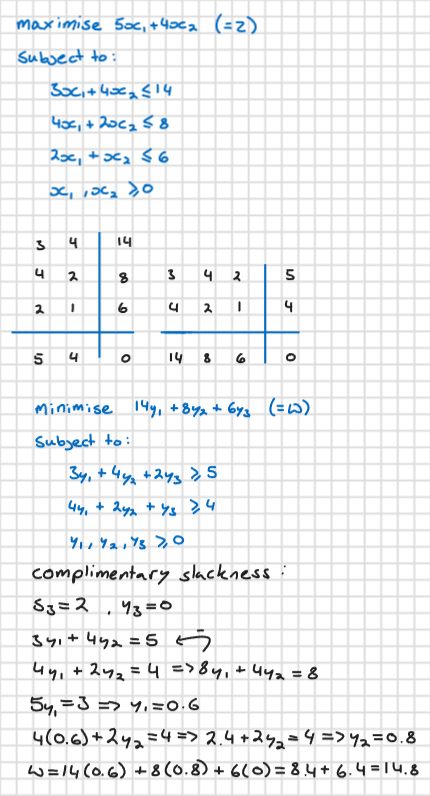 maximise 5x₁+4x₂ (=z)
Subject to:
3x₁+4x₂≤14
4x₁+2x₂≤8
2x₁+x₂≤6
x₁,x₂≥0
3 4 14
4 2 8 3 4 2 5
2 1 6 4 2 1 4
5 4 0 14 8 6 0
minimise 14y₁+8y₂+6y₃ (=ω)
Subject to:
3y₁+4y₂+2y₃≥5
4y₁+2y₂+y₃≥4
y₁,y₂,y₃≥0
complimentary slackness:
S₃=2, y₃=0
3y₁+4y₂=5
4y₁+2y₂=4=>8y₁+4y₂=8
5y₁=3=>y₁=0.6
4(0.6)+2y₂=4=>2.4+2y₂=4=>y₂=0.8
ω=14(0.6)+8(0.8)+6(0)=8.4+6.4=14.8